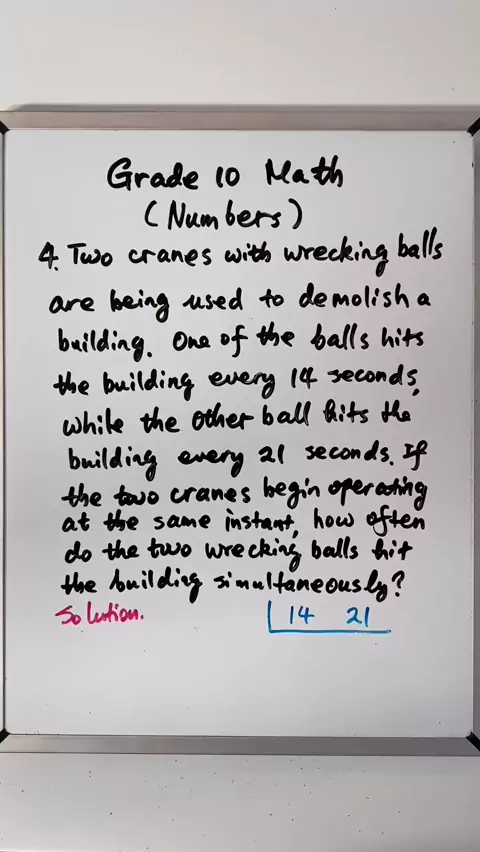 Grade 10 Math
(Numbers)
4. Two cranes with wrecking balls
are being used to demolish a
building. One of the balls hits
the building every 14 seconds,
while the other ball hits the
building every 21 seconds. If
the two cranes begin operating
at the same instant, how often
do the two wrecking balls hit
the building simultaneously?
Solution. 14 21